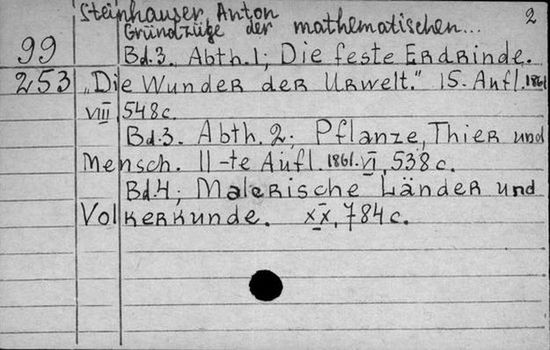 Steinhauser, Anton 2
Gründzüge der mathematischen...
99 Bd.3. Abth.1; Die feste Erdrinde.
253 „Die Wunder der Urwelt." 15. Aufl. 1861
VIII 548c.
Bd.3. Abth.2; Pflanze, Thier und
Mensch. 11-te Aufl. 1861. VI, 538c.
Bd.4; Malerische Länder und
Volkerkunde. XX, 784c.